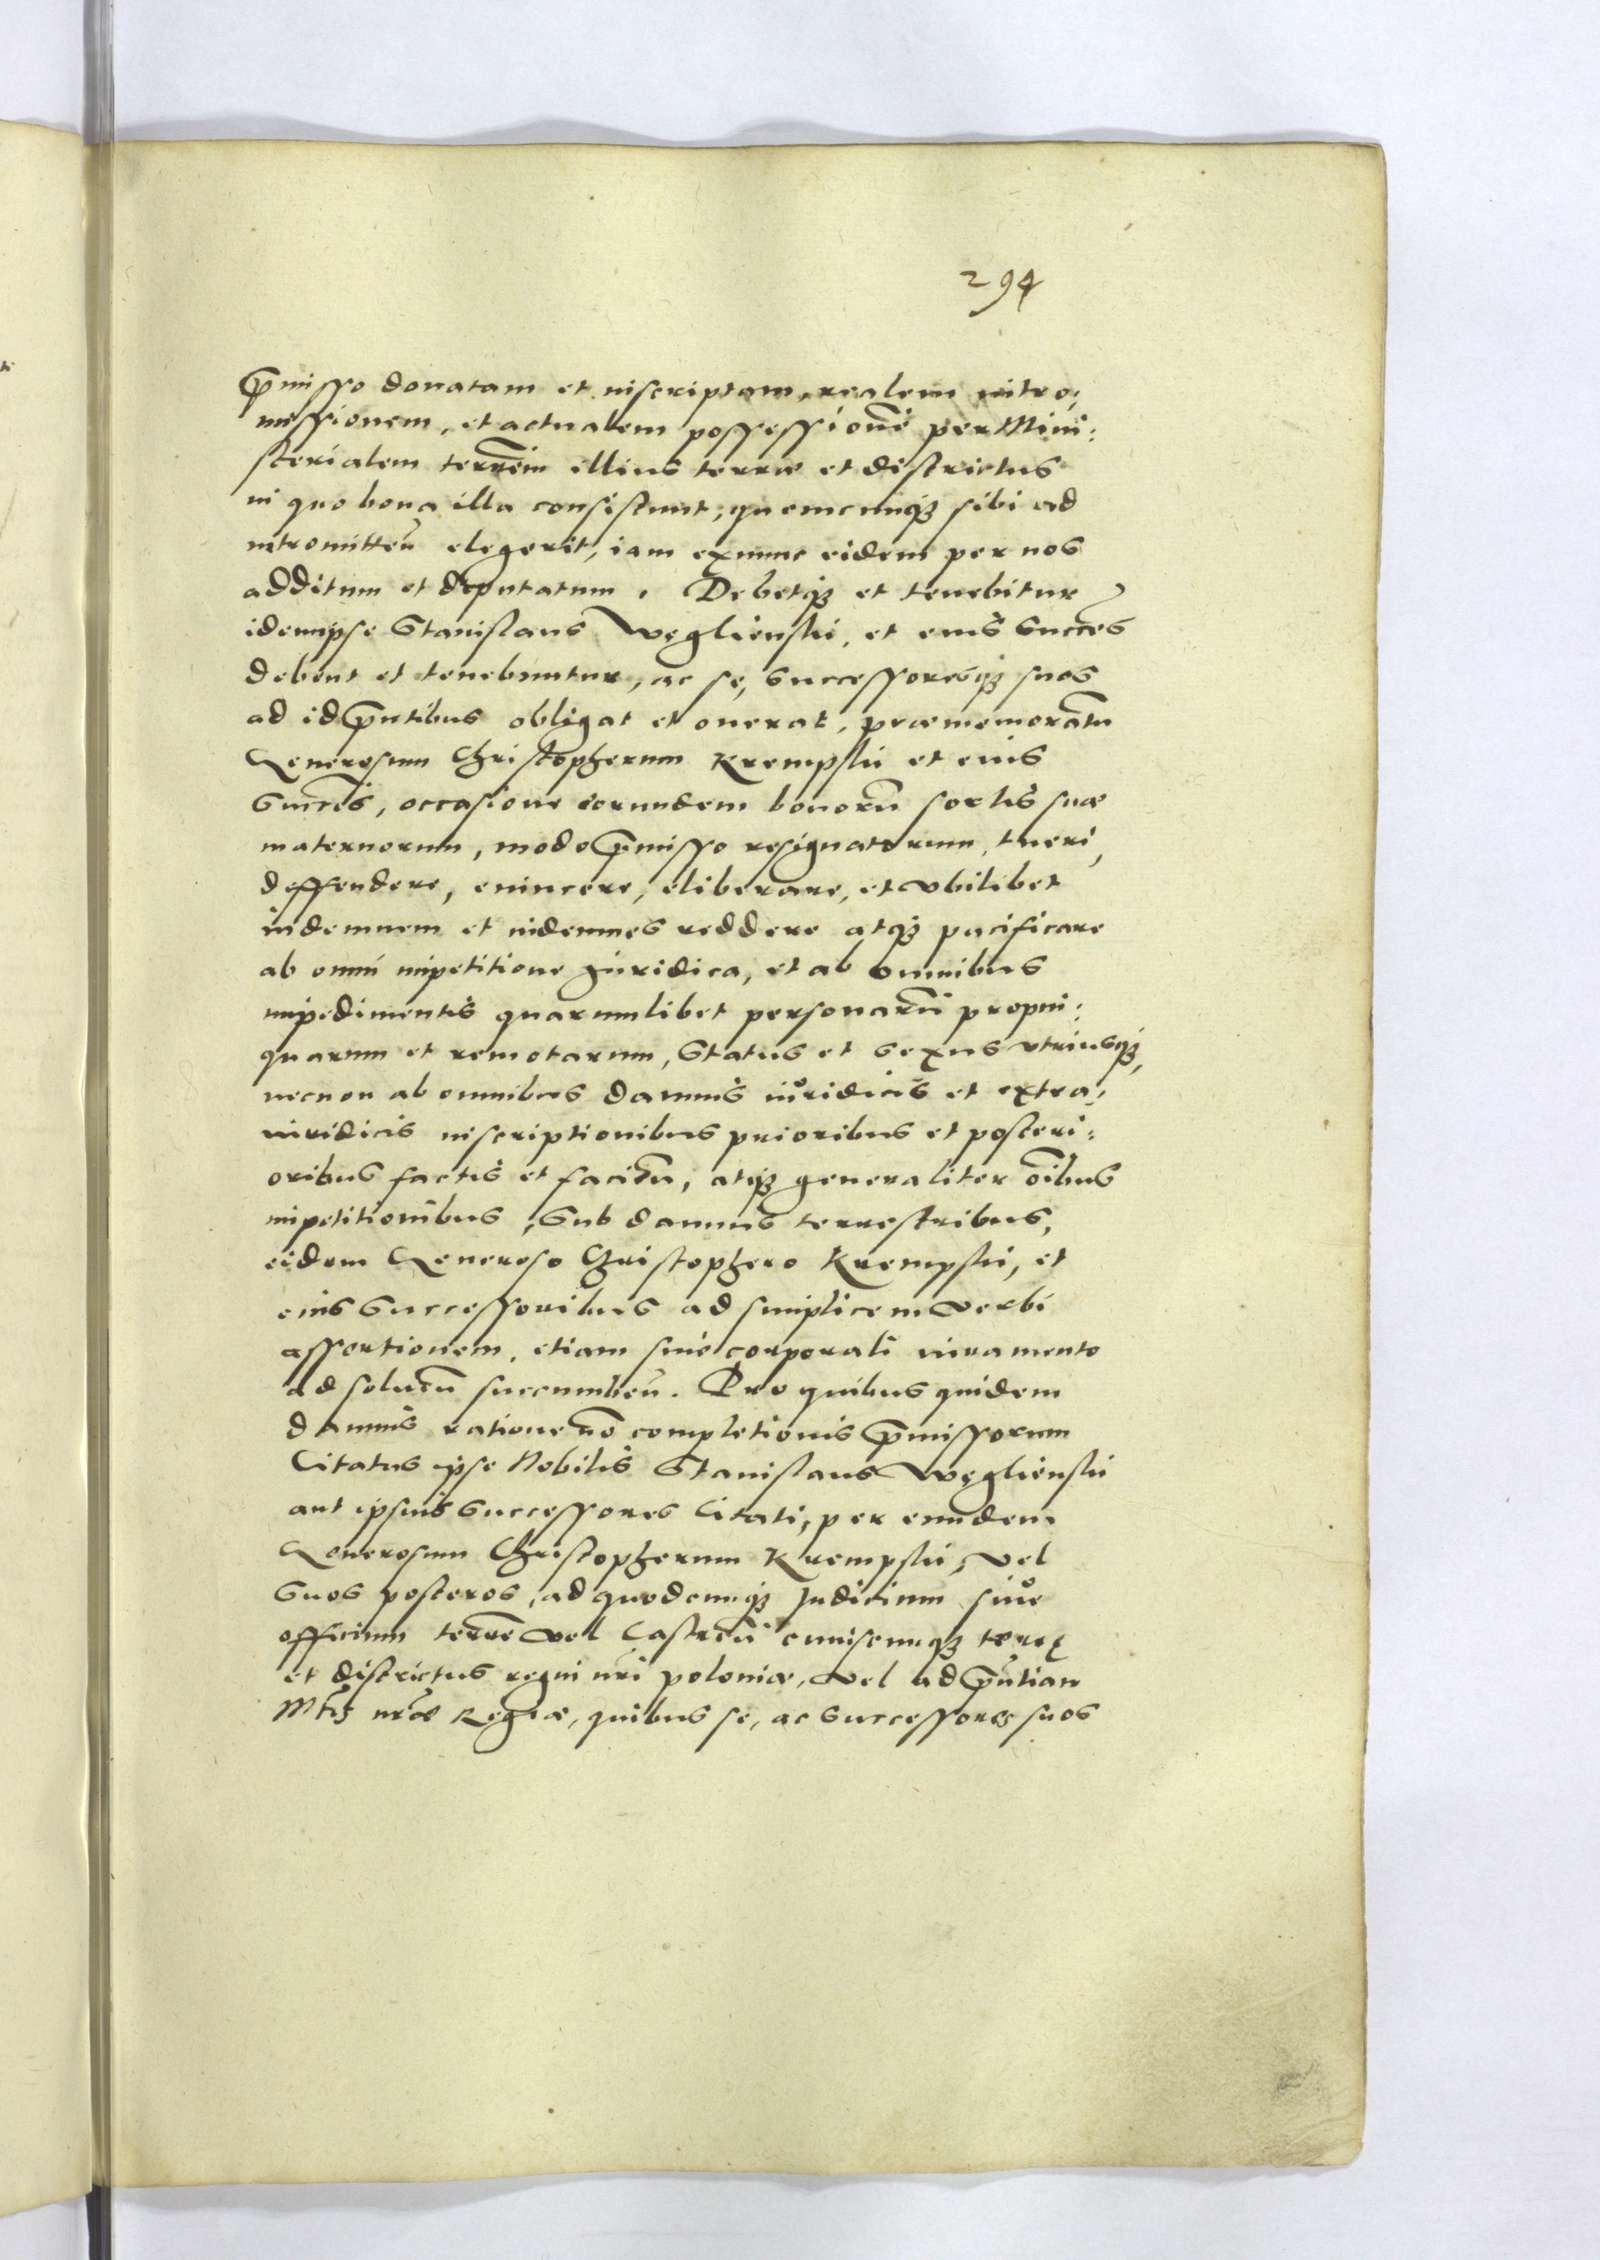 294
p̄misso donatam et inscriptam, realem intro:
missionem, et actualem possessionē per Mini:
sterialem terrēm illius terræ et districtus
in quo bona illa consistunt, quemcunqȝ sibi ad
intromitteñ elegerit, iam exnunc eidem per nos
additum et deputatum. Debetqȝ et tenebitur
idemipse Stanislaus Węglienski, et eius Succes̄
debent et tenebuntur, ac se, Successoresqȝ suos
ad id p̄ntibus obligat et onerat, præmemoratū
Generosum Christopherum Krempski et eius
Succes̄, occasione eorundem bonorū sortis suæ
maternorum, modo p̄misso resignatorum, tueri,
deffendere, euincere, eliberare, et vbilibet
indemnem et indemnes reddere atqȝ pacificare
ab omni impetitione Juridica, et ab omnibus
impedimentis quarumlibet personarū propin:
quarum et remotarum, Status et Sexus vtriusqȝ,
necnon ab omnibus damnis iuridicis et extra:
iuridicis inscriptionibus prioribus et posteri:
oribus factis et facieñ, atqȝ generaliter oībus
impetitionibus, Sub damnis terrestribus,
eidem Generoso Christophero Krempski, et
eius Successoribus ad simplicem verbi
assertionem, etiam sine corporali iuramento
ad solueñ succumbeñ. Pro quibus quidem
damnis ratione nō completionis p̄missorum
Citatus ipse Nobilis Stanislaus Węglienski
aut ipsius Successores Citati, per eundem
Generosum Christopherum Krempski, vel
Suos posteros, ad quodcunqȝ Judicium siue
officium terrē vel Castreñ cuiuscunqȝ terræ
et districtus regni nr̄i poloniæ, vel ad p̄ntiam
Mtis nræ Regiæ, quibus se, ac Successores suos